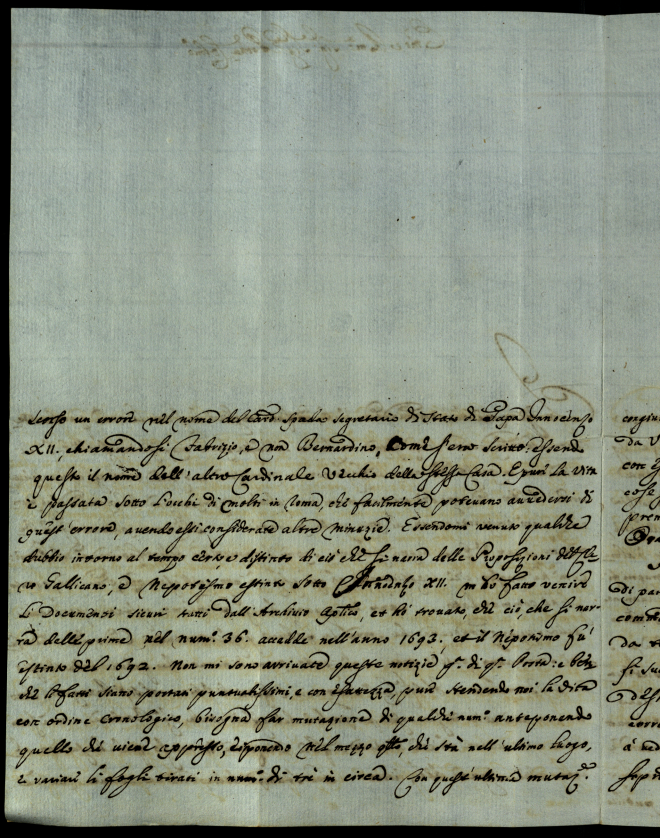 scorso un errore nel nome del Card. Spada Segretario di Stato di Papa Innocenzo
XII. chiamandosi Fabrizio, e non Bernardino, come si era scritto: essendo
questo il nome dell'altro Cardinale Vecchio della stessa Casa. E pure la vita
è passata sotto l'occhi di molti in Roma, che facilmente potevano avvedersi di
quest'errore, avendo essi considerate altre minuzie. Essendomi venuto qualche
dubbio intorno al tempo certo e distinto di ciò che si narra delle Proposizioni del Cle-
ro Gallicano, e Nepotismo estinto sotto Innocenzo XII. mi hò fatto venire
li Documenti sicuri tutti dall'Archivio Aplico, et hò trovato, che ciò, che si nar-
ra delle prime nel num.º 36. accadde nell'anno 1693. et il Nepotismo fù
estinto del 1692. Non mi sono arrivate queste notizie pª. di qª. Posta: e ben-
che li fatti siano portati puntualissimi, e con esatezza, pure stendendo noi la Vita
con ordine cronologico, bisogna far mutazione di qualche num.º anteponendo
quello che viene appresso, e ponendo nel mezzo qllo, che stà nell'ultimo luogo,
e variare li fogli tirati in num.º di trè in circa. Con quest'ultima mutaz.e